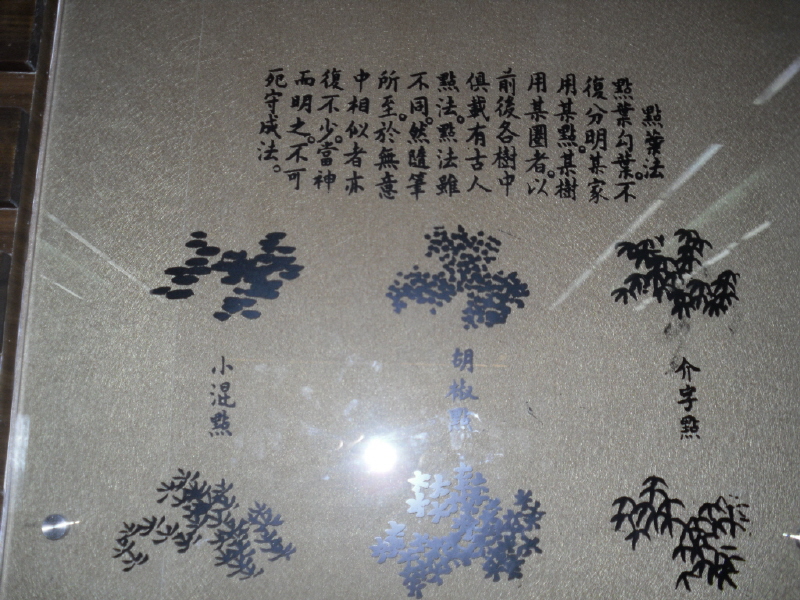 點葉法
點葉勾葉。不
復分明某家
用某點。某樹
用某圈者。以
前後各樹中
俱載有古人
點法。點法雖
不同。然隨筆
所至。於無意
中相似者亦
復不少。當神
而明之。不可
死守成法。
介字點
胡椒點
小混點